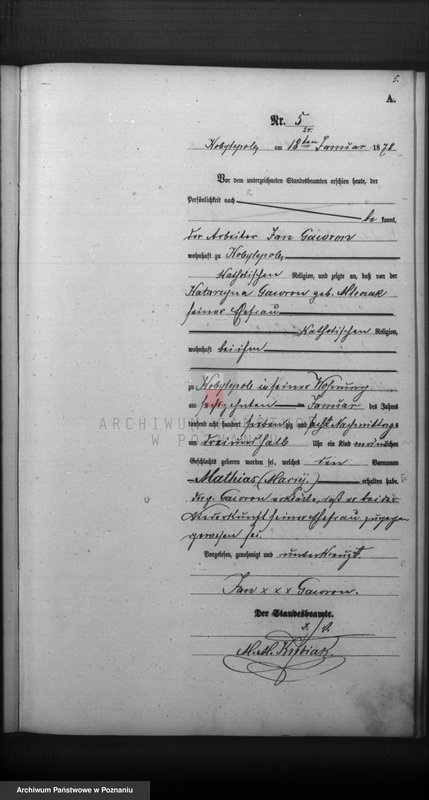 5.
A.
Nr. 5
24.
Kobylepole, am 18ten Januar 1878
Vor dem unterzeichneten Standesbeamten erschien heute, der
Persönlichkeit nach
be kannt,
der Arbeiter Jan Gawron
wohnhaft zu Kobylepole,
katholischen Religion, und zeigte an, daß von der
Katarzyna Gawron geb.
seiner Ehefrau
katholischen Religion,
wohnhaft bei ihm
zu Kobylepole in seiner Wohnung
am sechszehnten Januar des Jahres
tausend acht hundert sieben zig und acht Nachmittags
um drei und halb Uhr ein Kind männlichen
Geschlechts geboren worden sei, welches den Vornamen
Mathias (Maciej) erhalten habe.
Der p. Gawron erklärte, daß er bei der
Niederkunft seiner Ehefrau zugegen
gewesen sei.
Vorgelesen, genehmigt und unterkreuzt.
Jan x x x Gawron.
Der Standesbeamte.
J./V.
ARCHIWUM
W POZNANIU
Archiwum Państwowe w Poznaniu